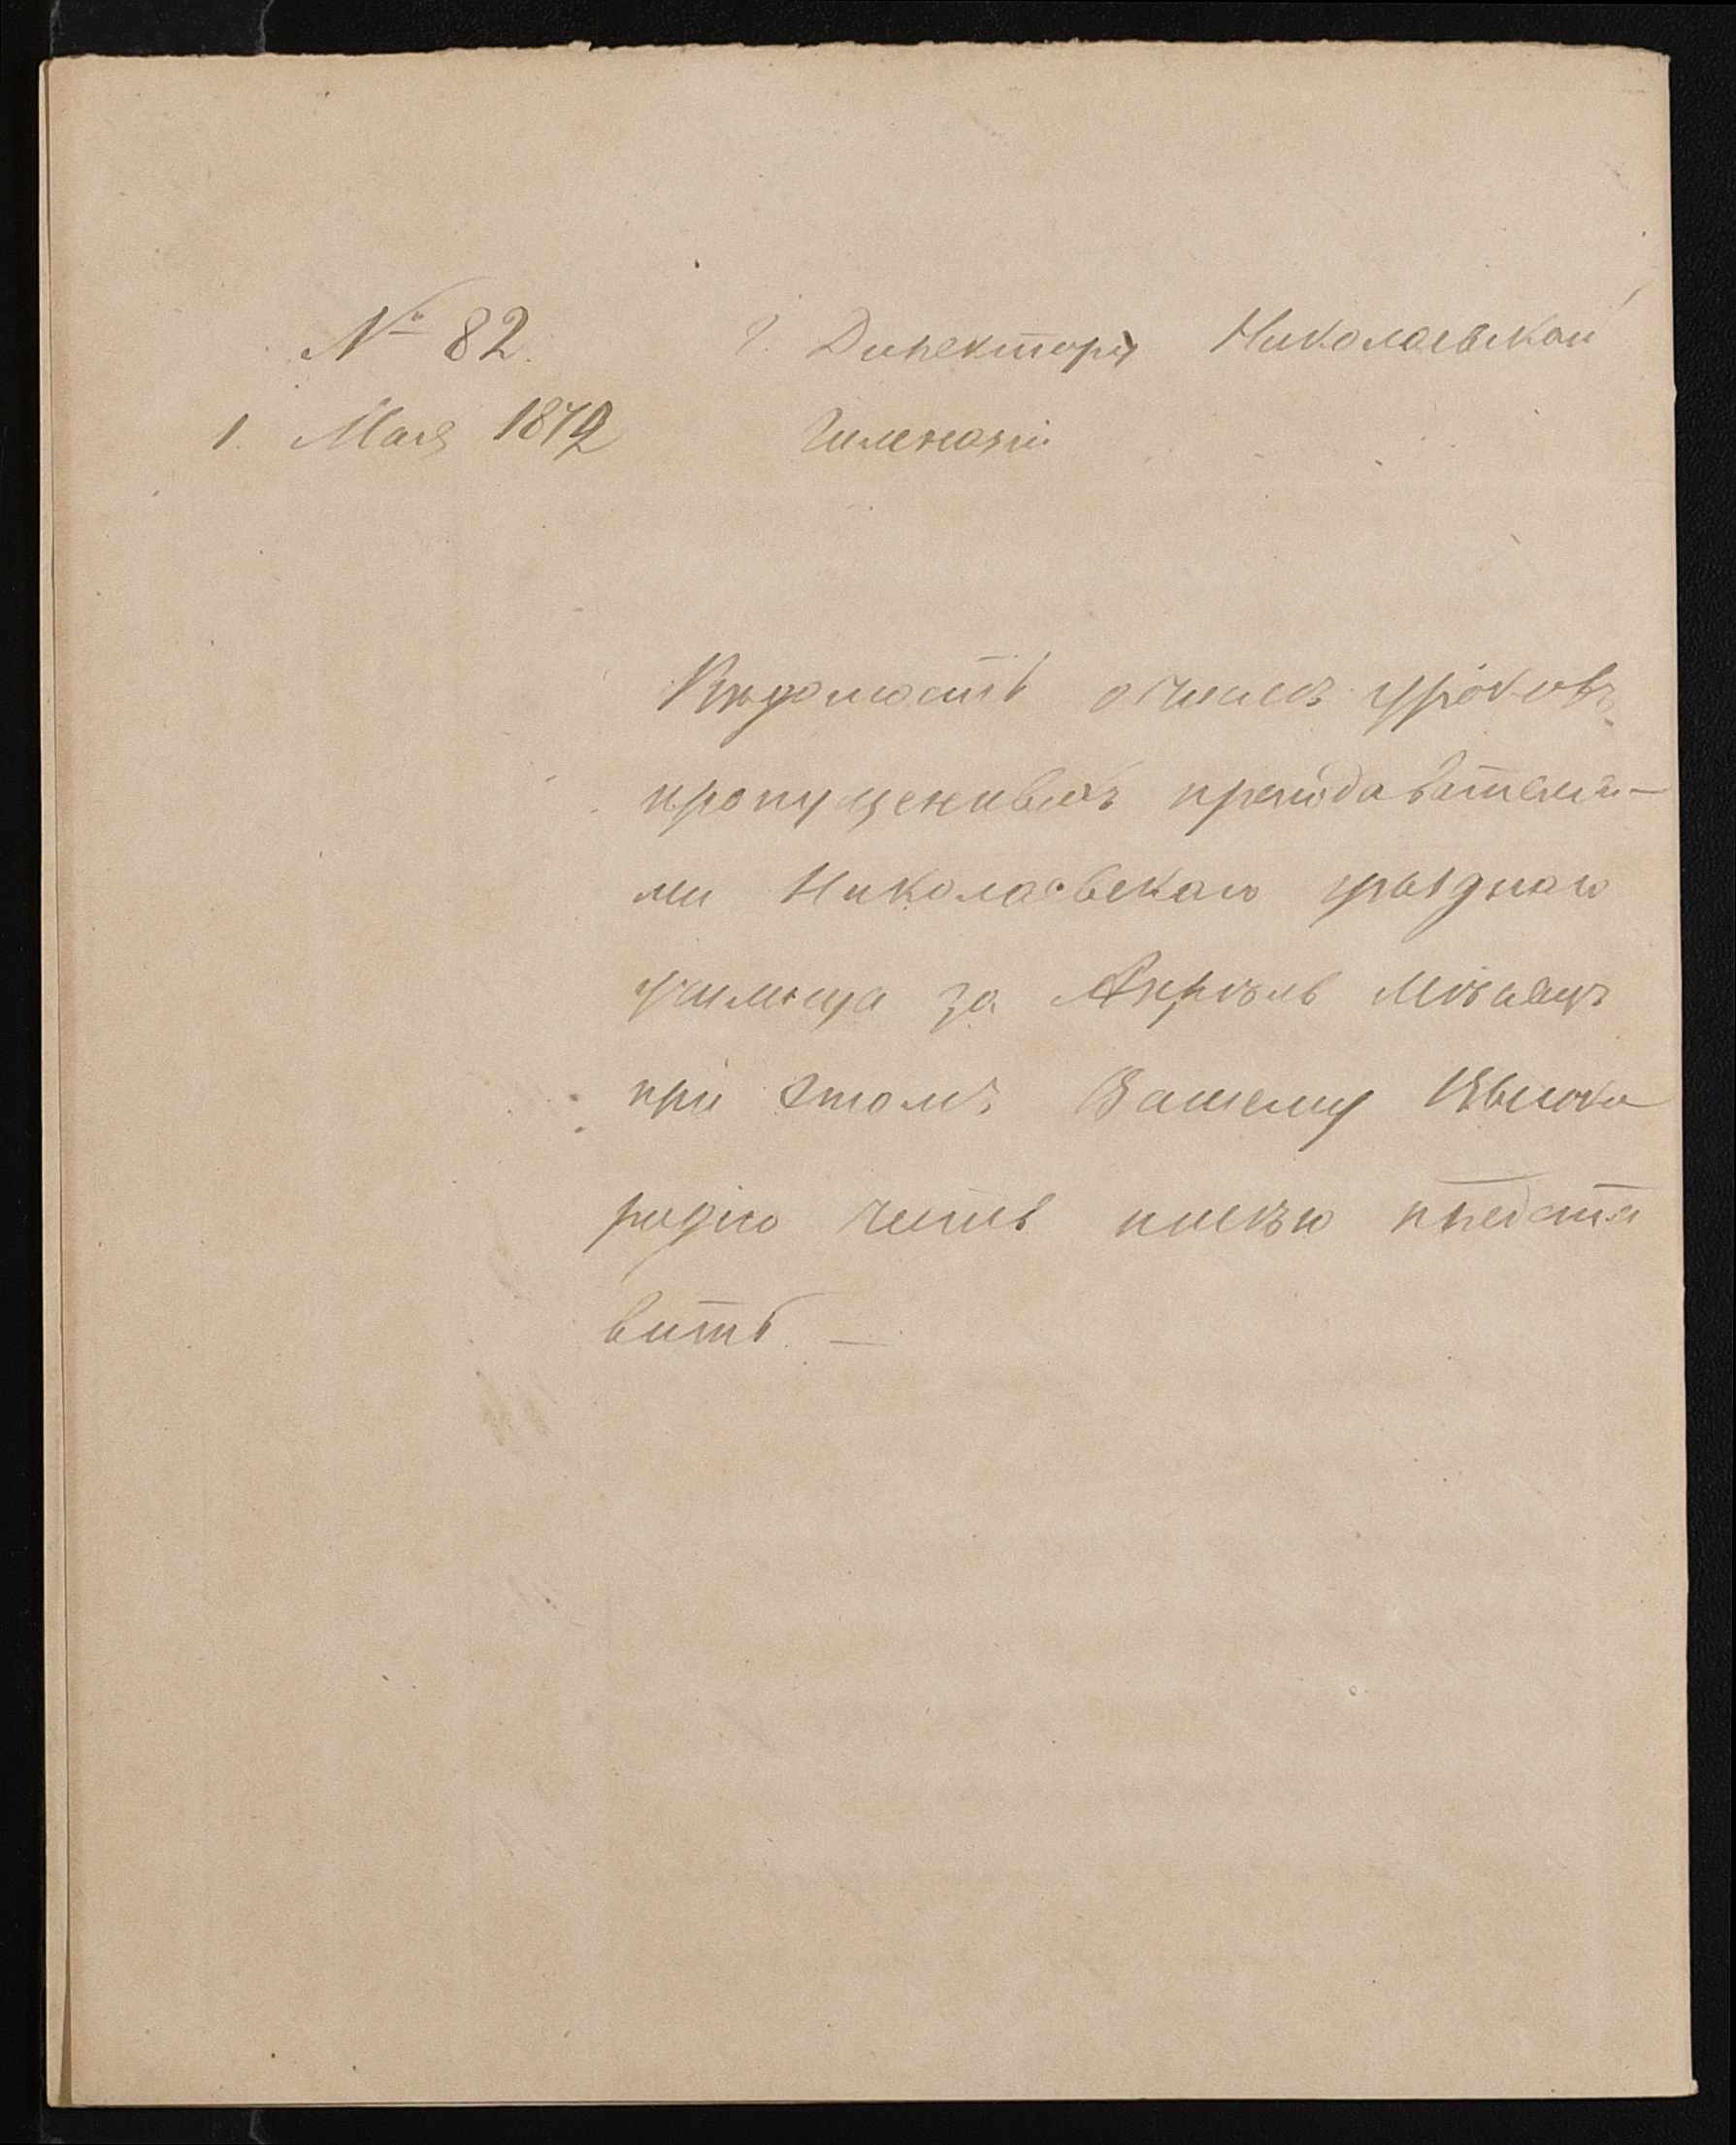 № 82.
1. Мая 1872
Г. Директору Николаевской
Гимназіи
Вѣдомость о числѣ уроковъ
пропущенныхъ преподавателя-
ми Николаевскаго уѣзднаго
училища за Апрѣль мѣсяцъ
при этомъ Вашему Высоко
родію честь имѣю предста
вить. —